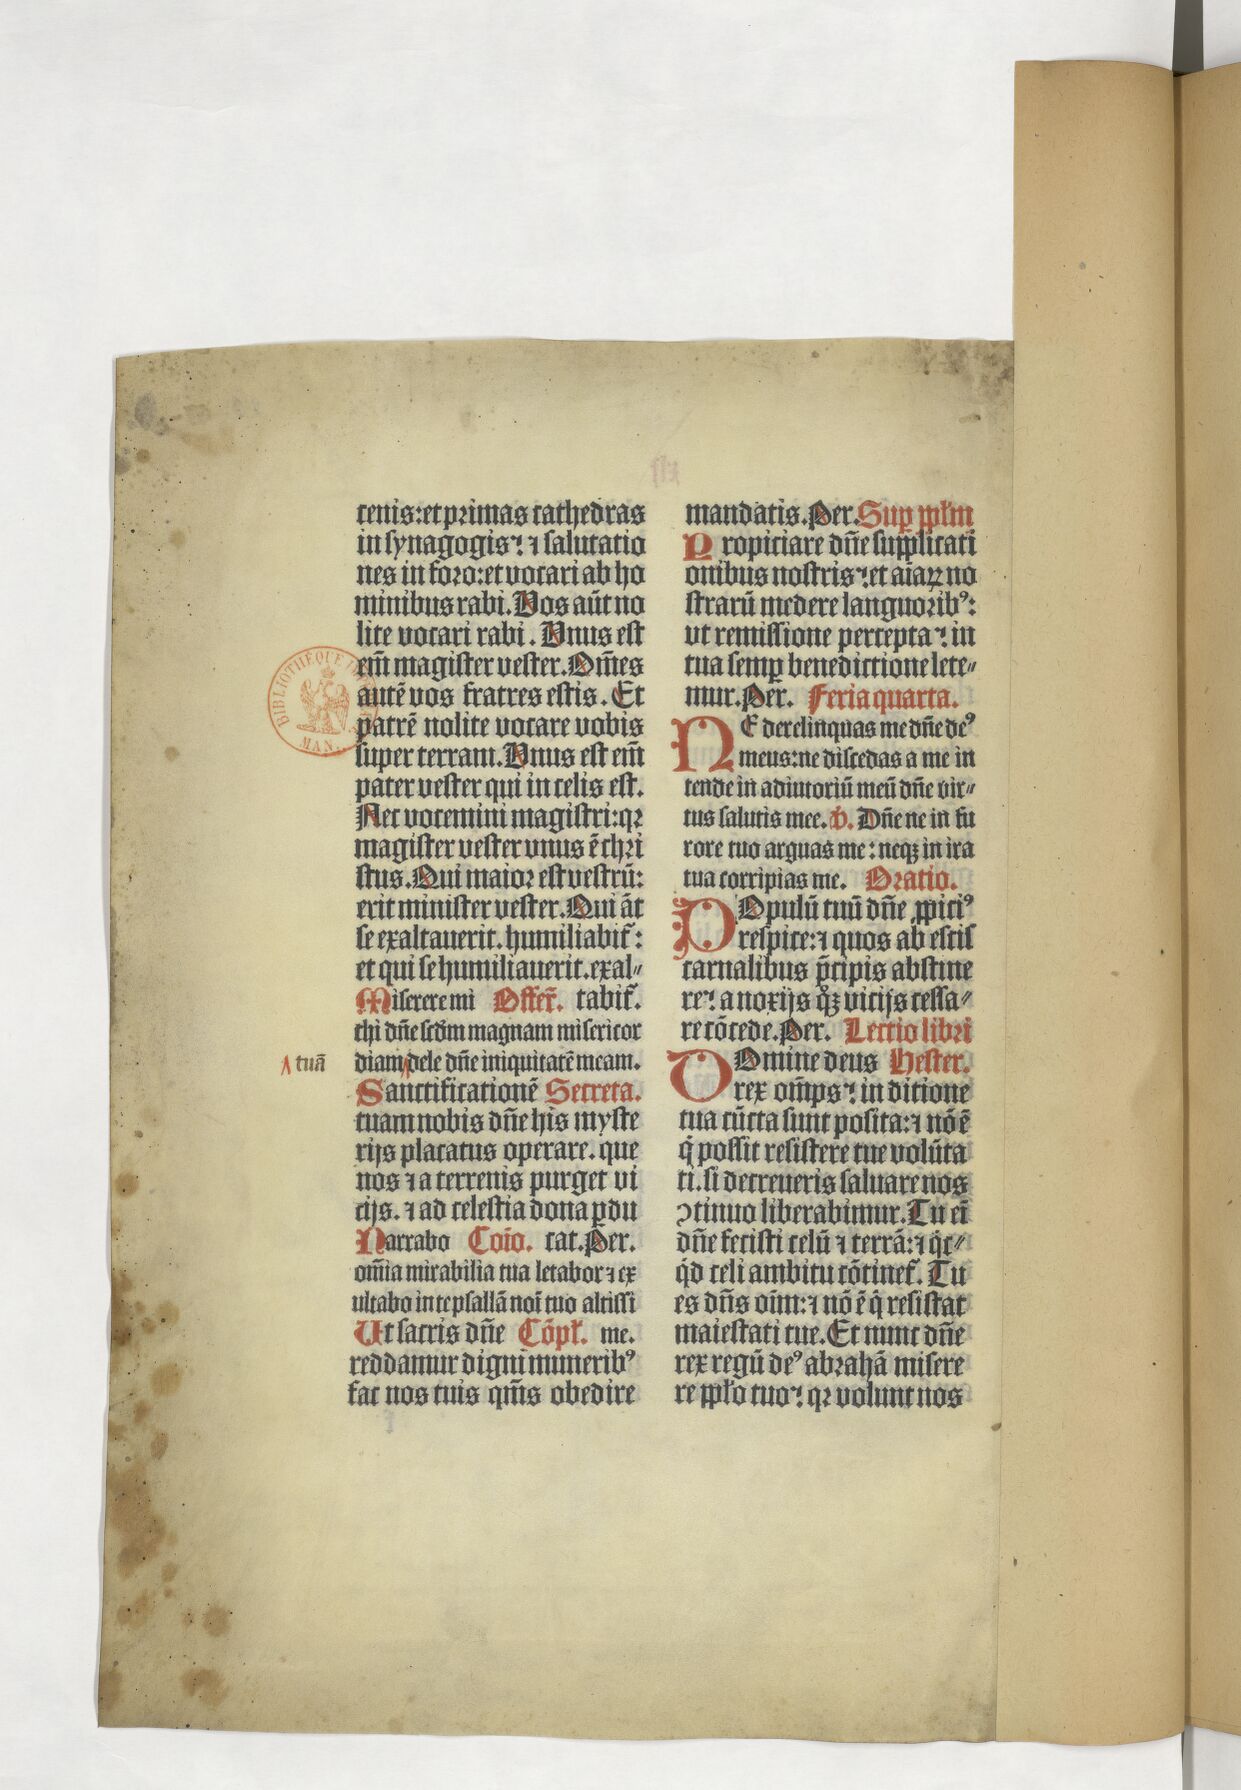 cenis:et primas cathedras
in synagogis: ⁊ salutatio
nes in foro:et vocari ab ho
minibus rabi. Vos aūt no
lite vocari rabi. Vnus est
em̄ magister vester. Om̄es
autē vos fratres estis. Et
patrē nolite vocare vobis
super terram. Vnus est em̄
pater vester qui in celis est.
Nec vocemini magistri: qꝛ
magister vester vnus ē chri
stus. Qui maior est vestrū:
erit minister vester. Qui āt
se exaltauerit. humiliabit̄:
et qui se humiliauerit. exal⸗
Miserere mi Offer̄. tabit̄.
chi dn̄e scdm magnam misericor
diam dele dn̄e iniquitatē meam.
tuā
Sanctificationē Secreta.
tuam nobis dn̄e his myste
rijs placatus operare. que
nos ⁊ a terrenis purget vi
cijs. ⁊ ad celestia dona ꝑdu
Narrabo Coīo. cat. Per.
om̄ia mirabilia tua letabor ⁊ ex
ultabo in te psallā noī tuo altissi
Ut sacris dn̄e Cōpl̄. me.
reddamur digni munerib⁹
fac nos tuis qm̄s obedire
mandatis. Per. Suꝑ ppl̄m
Propiciare dn̄e supplicati
onibus nostris: et aīaꝝ no
strarū medere languorib⁹:
vt remissione percepta: in
tua semꝑ benedictione lete⸗
mur. Per. Feria quarta.
NE derelinquas me dn̄e de⁹
meus: ne discedas a me in
tende in adiutoriū meū dn̄e vir⸗
tus salutis mee. v̄. Dn̄e ne in fu
rore tuo arguas me: neqꝫ in ira
tua corripias me. Oratio.
POpulū tuū dn̄e ꝓpici⁹
respice: ⁊ quos ab escis
carnalibus p̄cipis abstine
re: a noxijs qꝫ vicijs cessa⸗
re cōcede. Per. Lectio libri
DOmine deus Hester.
rex om̄ps: in dicione
tua cūcta sunt posita: ⁊ nō ē
q̇ possit resistere tue volūta
ti. si decreueris saluare nos
ꝯtinuo liberabimur. Tu eī
dn̄e fecisti celū ⁊ terrā: ⁊ q̇c⸗
q̇d celi ambitu cōtinet̄. Tu
es dn̄s oīm: ⁊ nō ē q̇ resistat
maiestati tue. Et nunc dn̄e
rex regū de⁹ abrahā misere
re pplo tuo: qꝛ volunt nos
BIBLIOTHÈQUE
MAN.